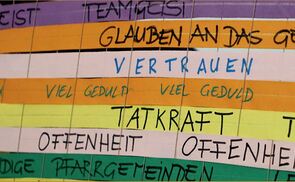 EIST TEAMGEIST
GLAUBEN AN DAS GE
VERTRAUEN
VIEL GEDULD VIEL GEDULD
TATKRAFT T
OFFENHEIT OFFENHE
DIGE PFARRGEMEINDEN LE